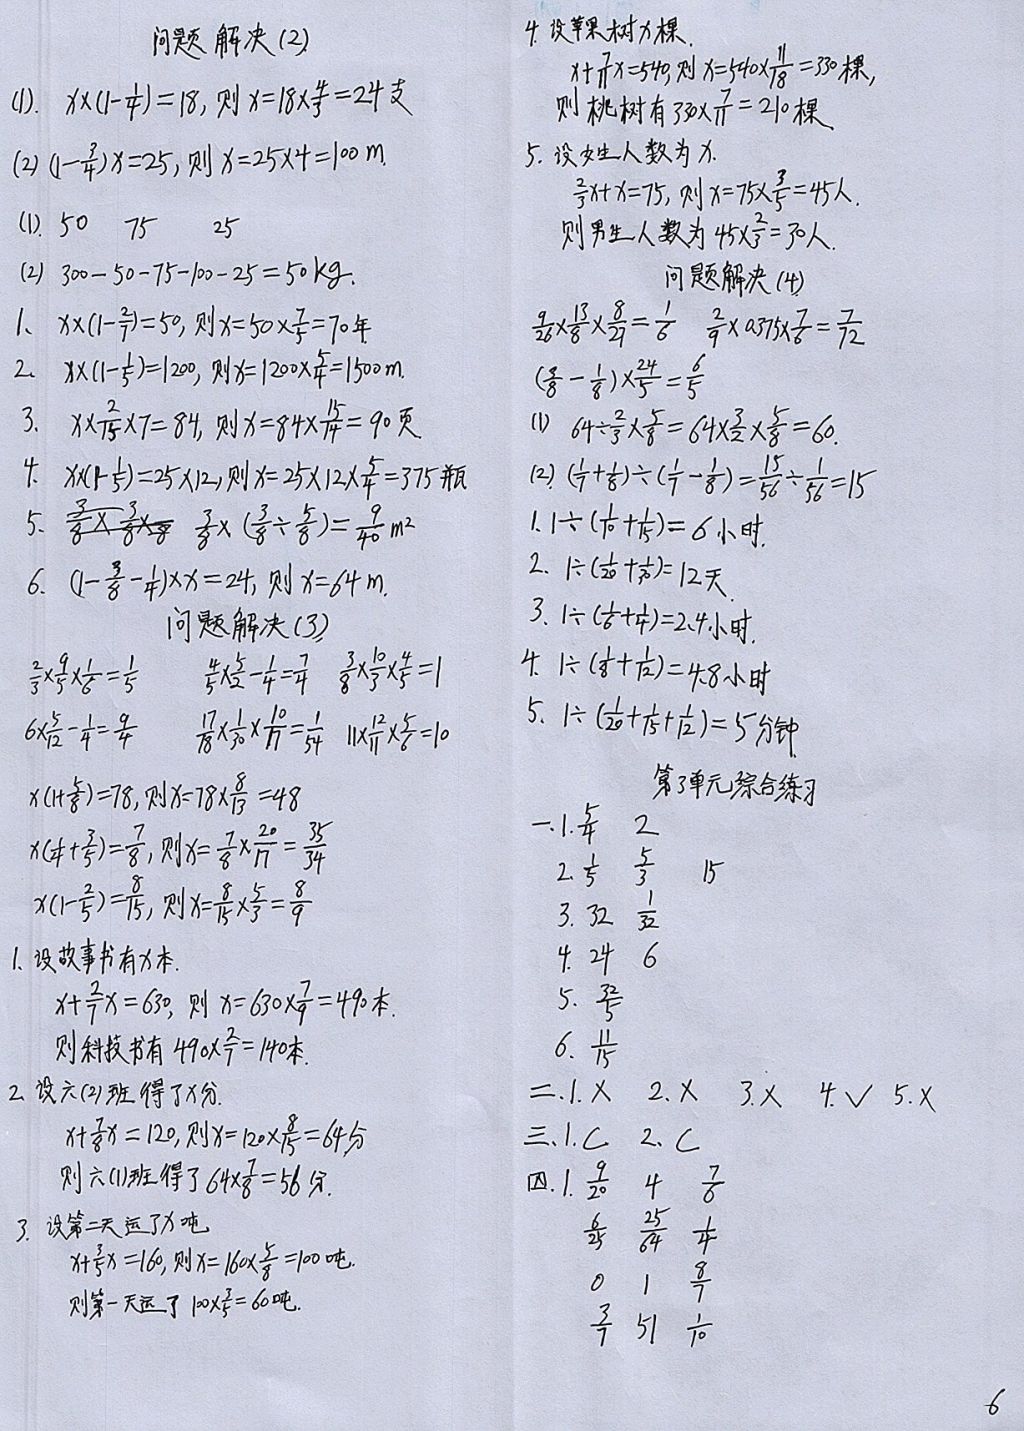 问题解决(2)
(1). x×(1-1/4)=18, 则 x=18×4/3=24支
(2) (1-3/4)x=25, 则 x=25×4=100m.
(1). 50 75 25
(2) 300-50-75-100-25=50kg.
1、 x×(1-2/7)=50, 则x=50×7/5=70年
2. x×(1-1/5)=1200, 则x=1200×5/4=1500m.
3. x×2/15×7=84, 则x=84×15/14=90页
4. x×(1-1/5)=25×12, 则x=25×12×5/4=375瓶
5. 3/8×(3/8÷5/8)=9/40 m²
6. (1-3/8-1/4)×x=24, 则 x=64m.
问题解决(3)
2/3×9/5×1/6=1/5 4/5×5/2-1/4=7/4 3/8×10/3×4/5=1
6×5/12-1/4=9/4 17/18×1/30×10/17=1/54 11×12/11×5/6=10
x(1+5/8)=78, 则x=78×8/13=48
x(1/4+3/5)=7/8, 则x=7/8×20/17=35/34
x(1-2/5)=8/15, 则x=8/15×5/3=8/9
1. 设故事书有x本.
x+2/7x=630, 则 x=630×7/9=490本.
则科技书有 490×2/7=140本.
2. 设六(2)班得了x分.
x+7/8x=120, 则x=120×8/15=64分
则六(1)班得了64×7/8=56分.
3. 设第二天运了x吨
x+3/5x=160, 则x=160×5/8=100吨.
则第一天运了100×3/5=60吨.
4. 设苹果树x棵.
x+7/11x=540, 则x=540×11/18=330棵,
则桃树有330×7/11=210棵
5. 设女生人数为x.
2/3x+x=75, 则x=75×3/5=45人.
则男生人数为45×2/3=30人.
问题解决(4)
9/26×13/8×8/27=1/6 2/9×0.375×7/6=7/72
(3/8-1/8)×24/5=6/5
(1) 64÷2/3×5/8=64×3/2×5/8=60.
(2) (1/7+1/8)÷(1/7-1/8)=15/56÷1/56=15
1. 1÷(1/10+1/15)=6小时.
2. 1÷(1/20+1/30)=12天
3. 1÷(1/6+1/4)=2.4小时.
4. 1÷(1/8+1/12)=4.8小时
5. 1÷(1/20+1/15+1/12)=5分钟
第3单元综合练习
一. 1. 5/4 2
2. 1/5 5/3 15
3. 32 1/32
4. 24 6
5. 32/5
6. 11/15
二. 1. × 2. × 3. × 4. ✓ 5. ×
三. 1. C 2. C
四. 1. 9/20 4 7/6
6/25 25/64 1/4
0 1 8/7
3/7 51 1/10
6